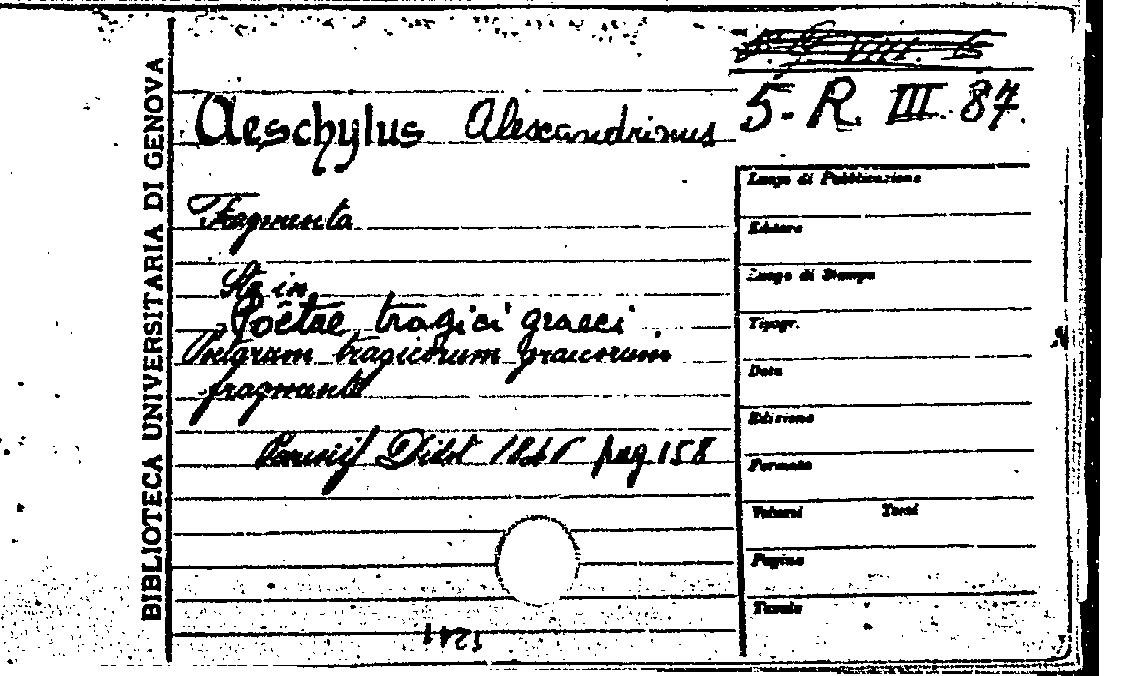 BIBLIOTECA UNIVERSITARIA DI GENOVA
5. R. III. 87.
Aeschylus Alexandrinus
Fragmenta
Sta in
Poëtae tragici graeci
tragicorum graecorum
fragmenta
Parisiis Didot pag 158
Luogo di Pubblicazione
Editore
Luogo di Stampa
Tipogr.
Data
Edizione
Formato
Volumi Tomi
Pagine
Tavole
1241